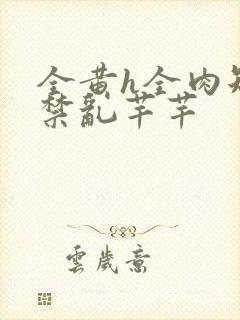 全黄h全肉短
禁乱芊芊
雲歲意